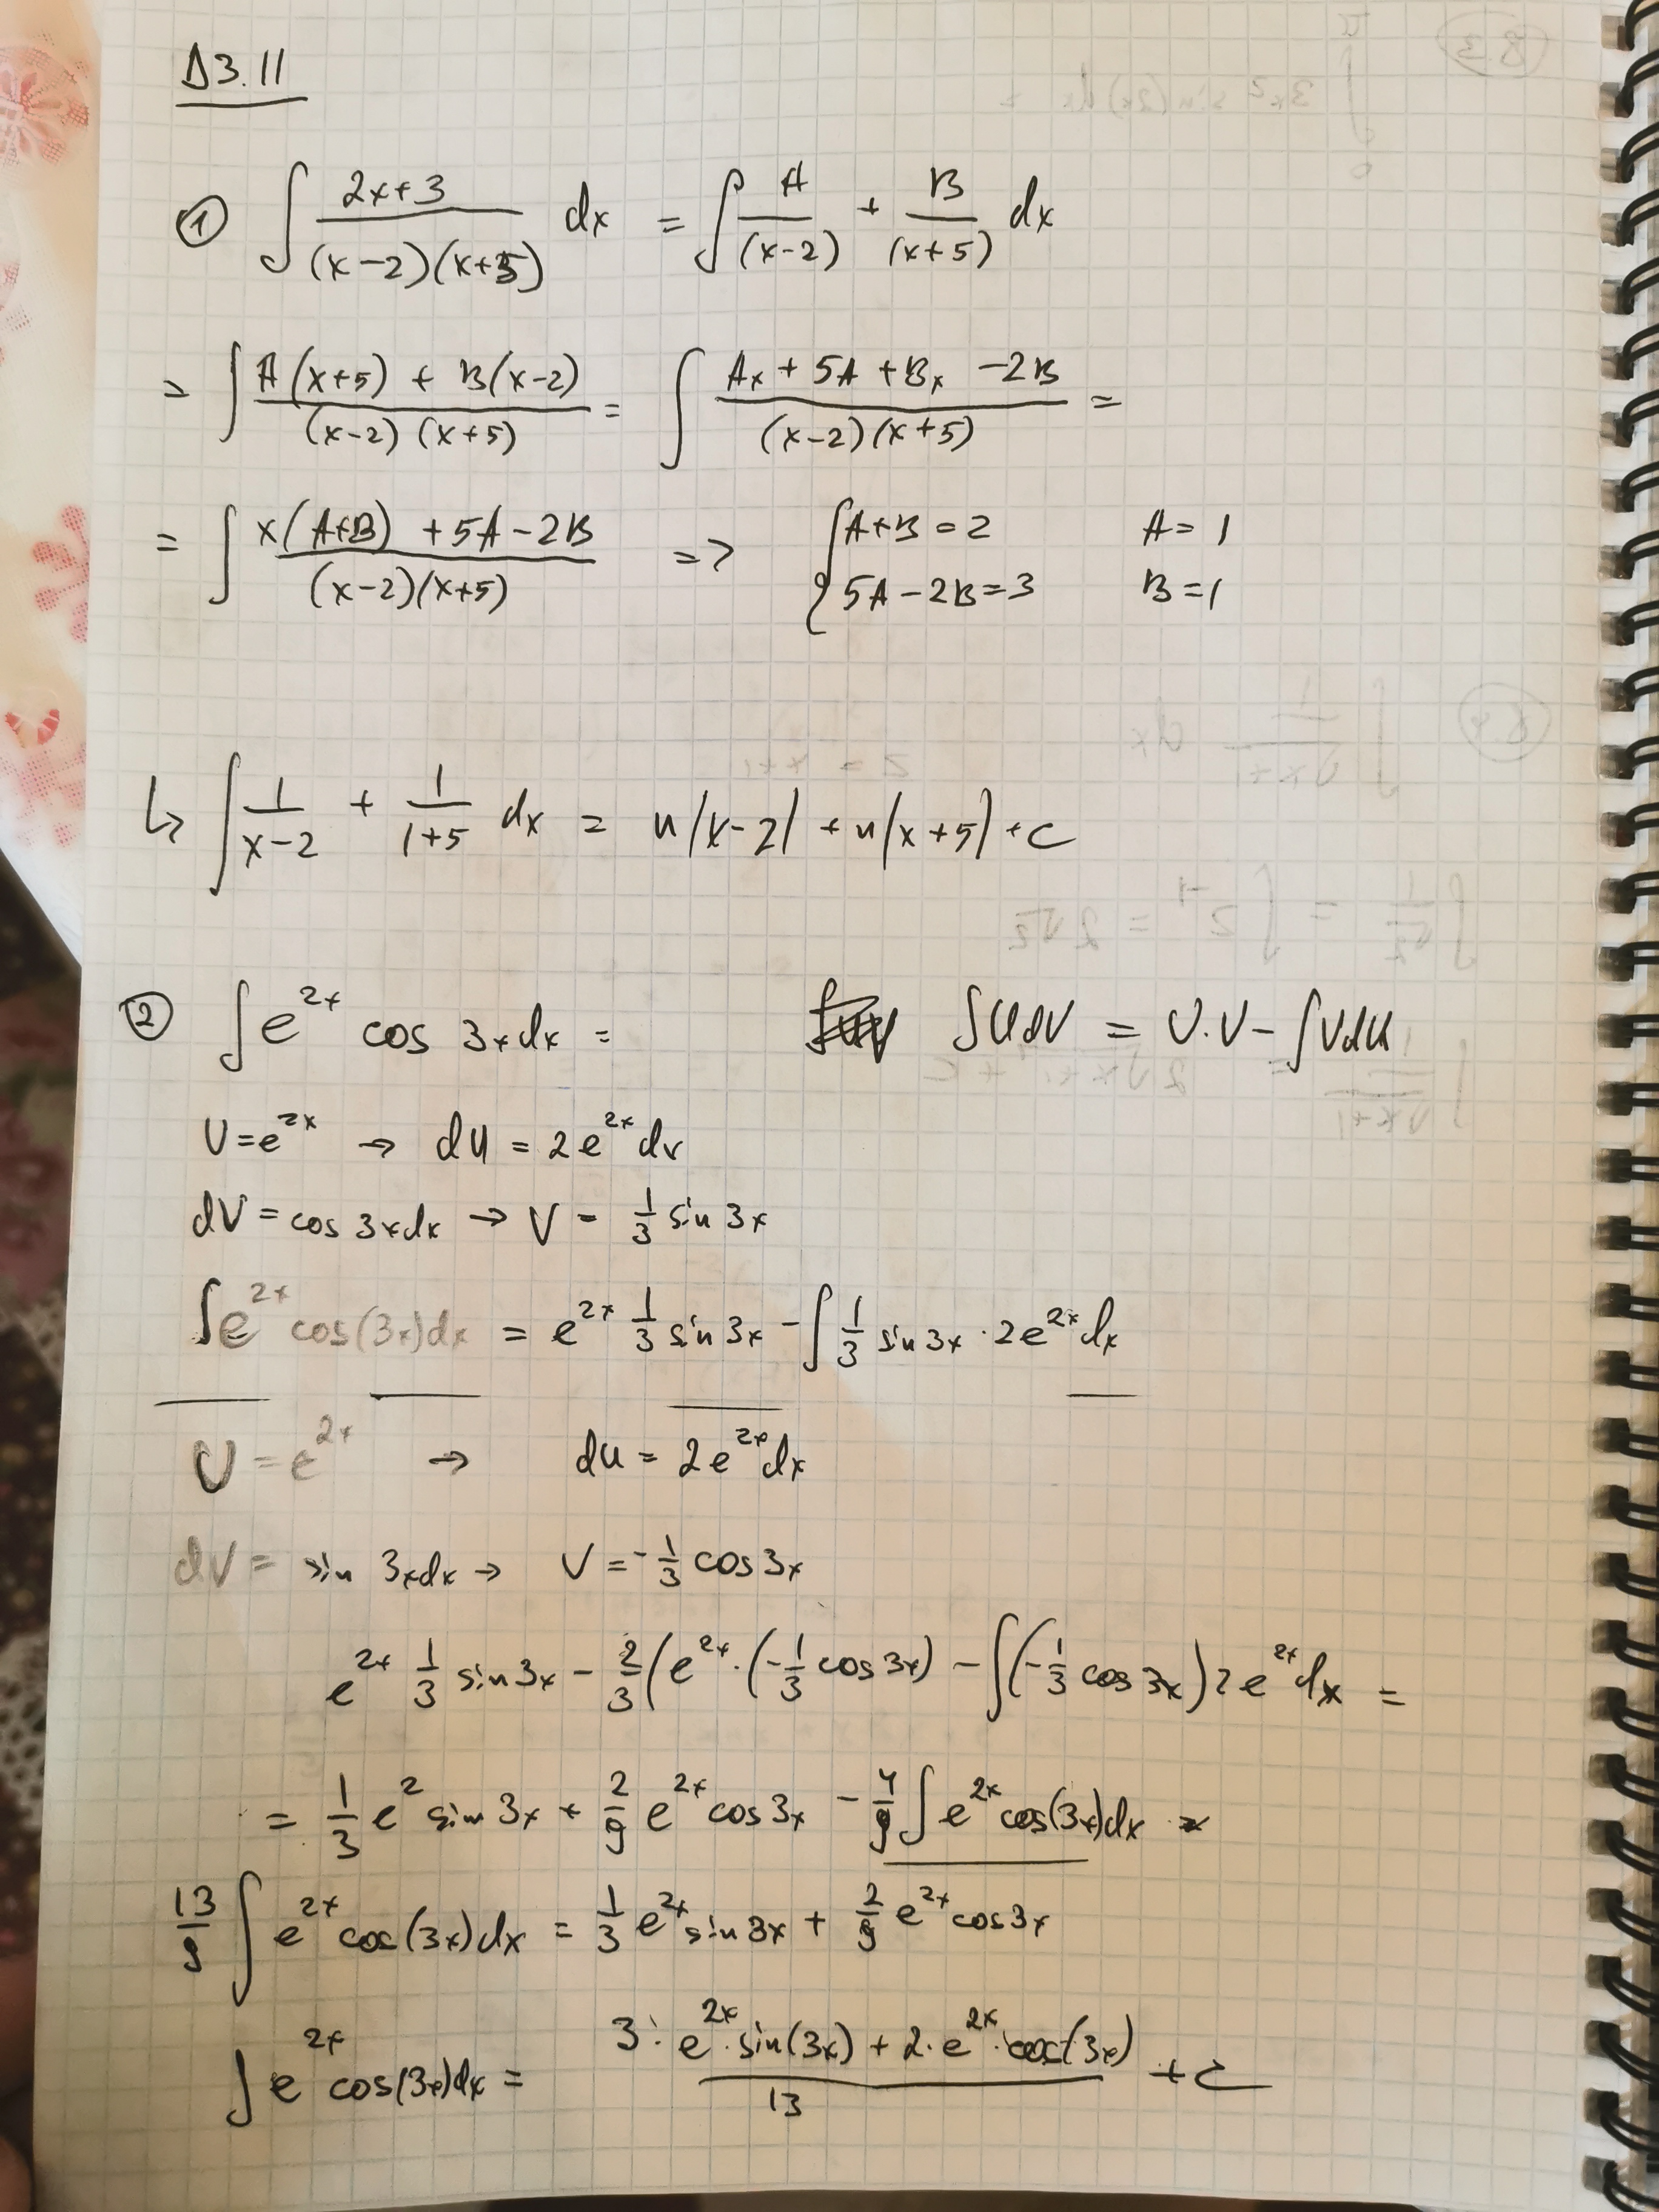 Δ3.11
① ∫ (2x+3)/((x-2)(x+5)) dx = ∫ A/(x-2) + B/(x+5) dx
= ∫ (A(x+5) + B(x-2))/((x-2)(x+5)) = ∫ (Ax + 5A + Bx - 2B)/((x-2)(x+5)) =
= ∫ (x(A+B) + 5A - 2B)/((x-2)(x+5)) => { A+B = 2 A = 1
5A - 2B = 3 B = 1
↳ ∫ 1/(x-2) + 1/(1+5) dx = n|x-2| + n|x+5| + C
② ∫ e^{2x} cos 3x dx = ∫UdV = U.V - ∫VdU
U = e^{2x} → dU = 2e^{2x} dx
dV = cos 3x dx → V = 1/3 sin 3x
∫ e^{2x} cos(3x)dx = e^{2x} 1/3 sin 3x - ∫ 1/3 sin 3x · 2e^{2x} dx
U = e^{2x} → du = 2e^{2x} dx
dV = sin 3x dx → V = -1/3 cos 3x
e^{2x} 1/3 sin 3x - 2/3 (e^{2x} · (-1/3 cos 3x) - ∫(-1/3 cos 3x) 2e^{2x} dx =
= 1/3 e^2 sin 3x + 2/9 e^{2x} cos 3x - 4/9 ∫ e^{2x} cos(3x)dx =
13/9 ∫ e^{2x} cos(3x)dx = 1/3 e^{2x} sin 3x + 2/9 e^{2x} cos 3x
∫ e^{2x} cos(3x)dx = (3 · e^{2x} · sin(3x) + 2 · e^{2x} · cos(3x))/13 + C